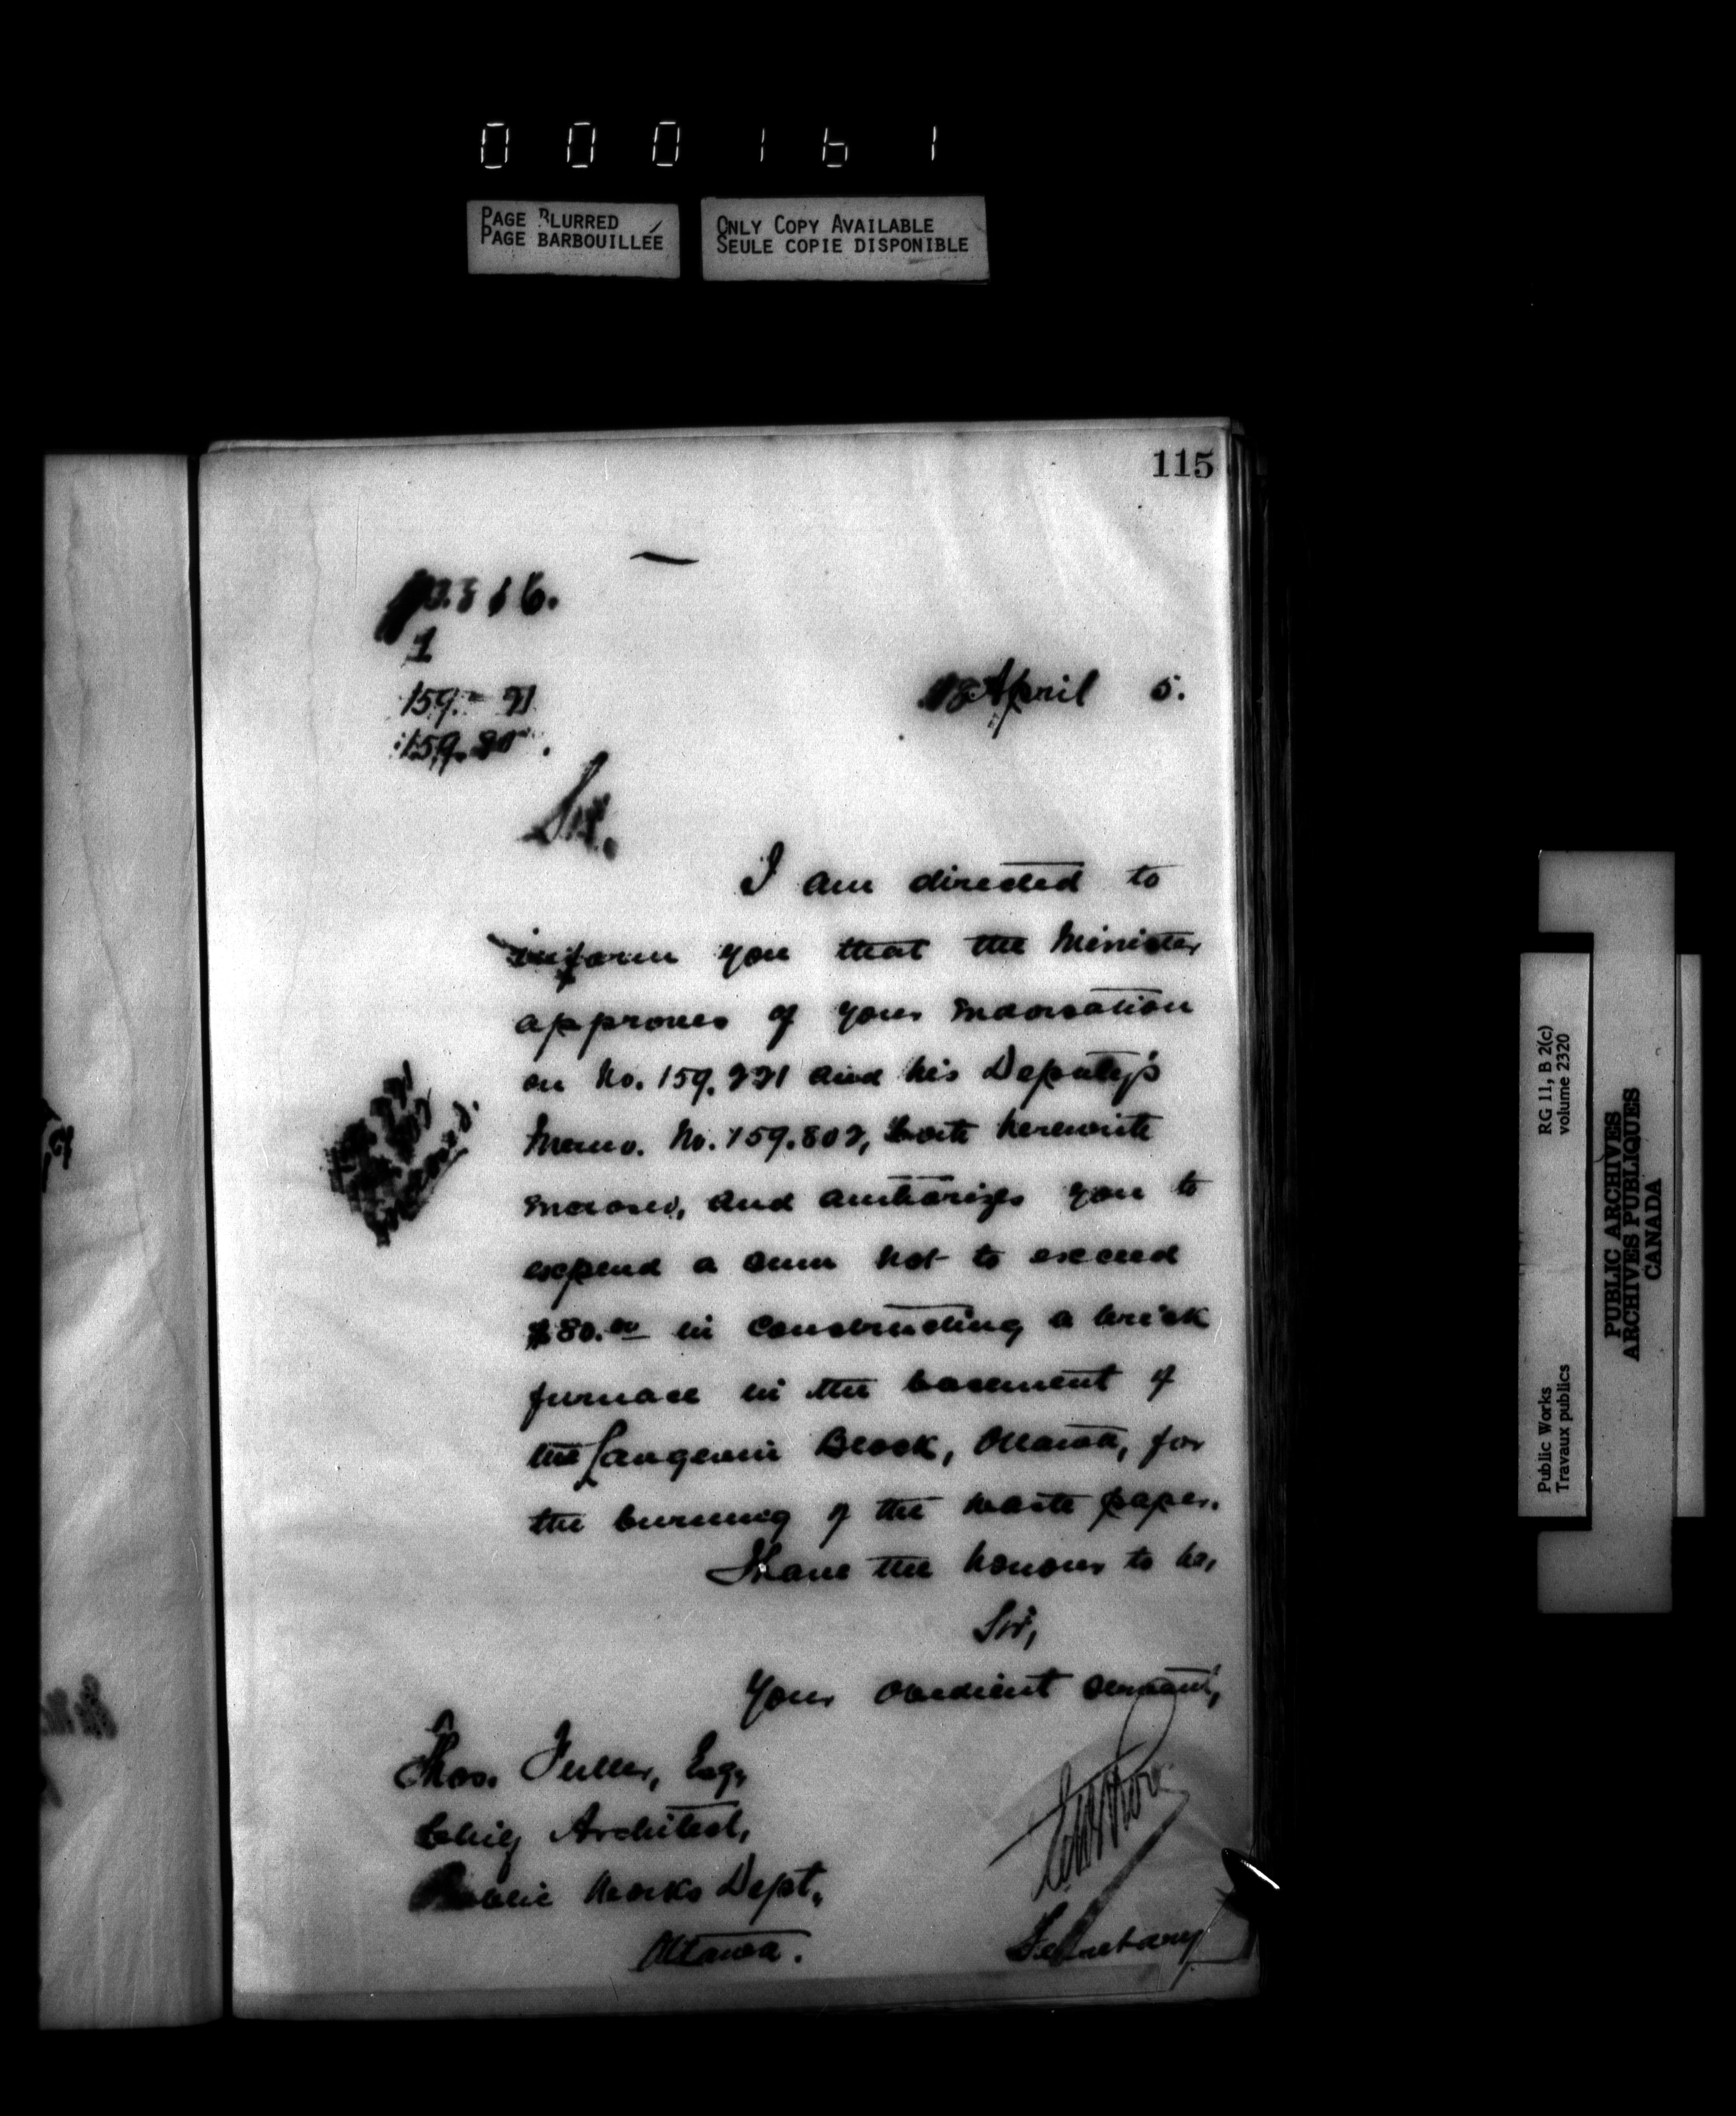 000161
PAGE BLURRED
PAGE BARBOUILLÉE
ONLY COPY AVAILABLE
SEULE COPIE DISPONIBLE
115
18 April 5.
Sir,
I am directed to
inform you that the Minister
approves of your indorsation
on No. 159.221 and his Deputy's
Memo. No. 159.802, both herewith
inclosed, and authorizes you to
expend a sum not to exceed
$80.00 in constructing a brick
furnace in the basement of
the Langevin Block, Ottawa, for
the burning of the waste paper.
I have the honour to be,
Sir,
Your obedient servant,
Thos. Fuller, Esq,
Chief Architect,
Public Works Dept.,
Ottawa.
Secretary
Public Works
Travaux publics
RG 11, B 2(c)
volume 2320
PUBLIC ARCHIVES
ARCHIVES PUBLIQUES
CANADA